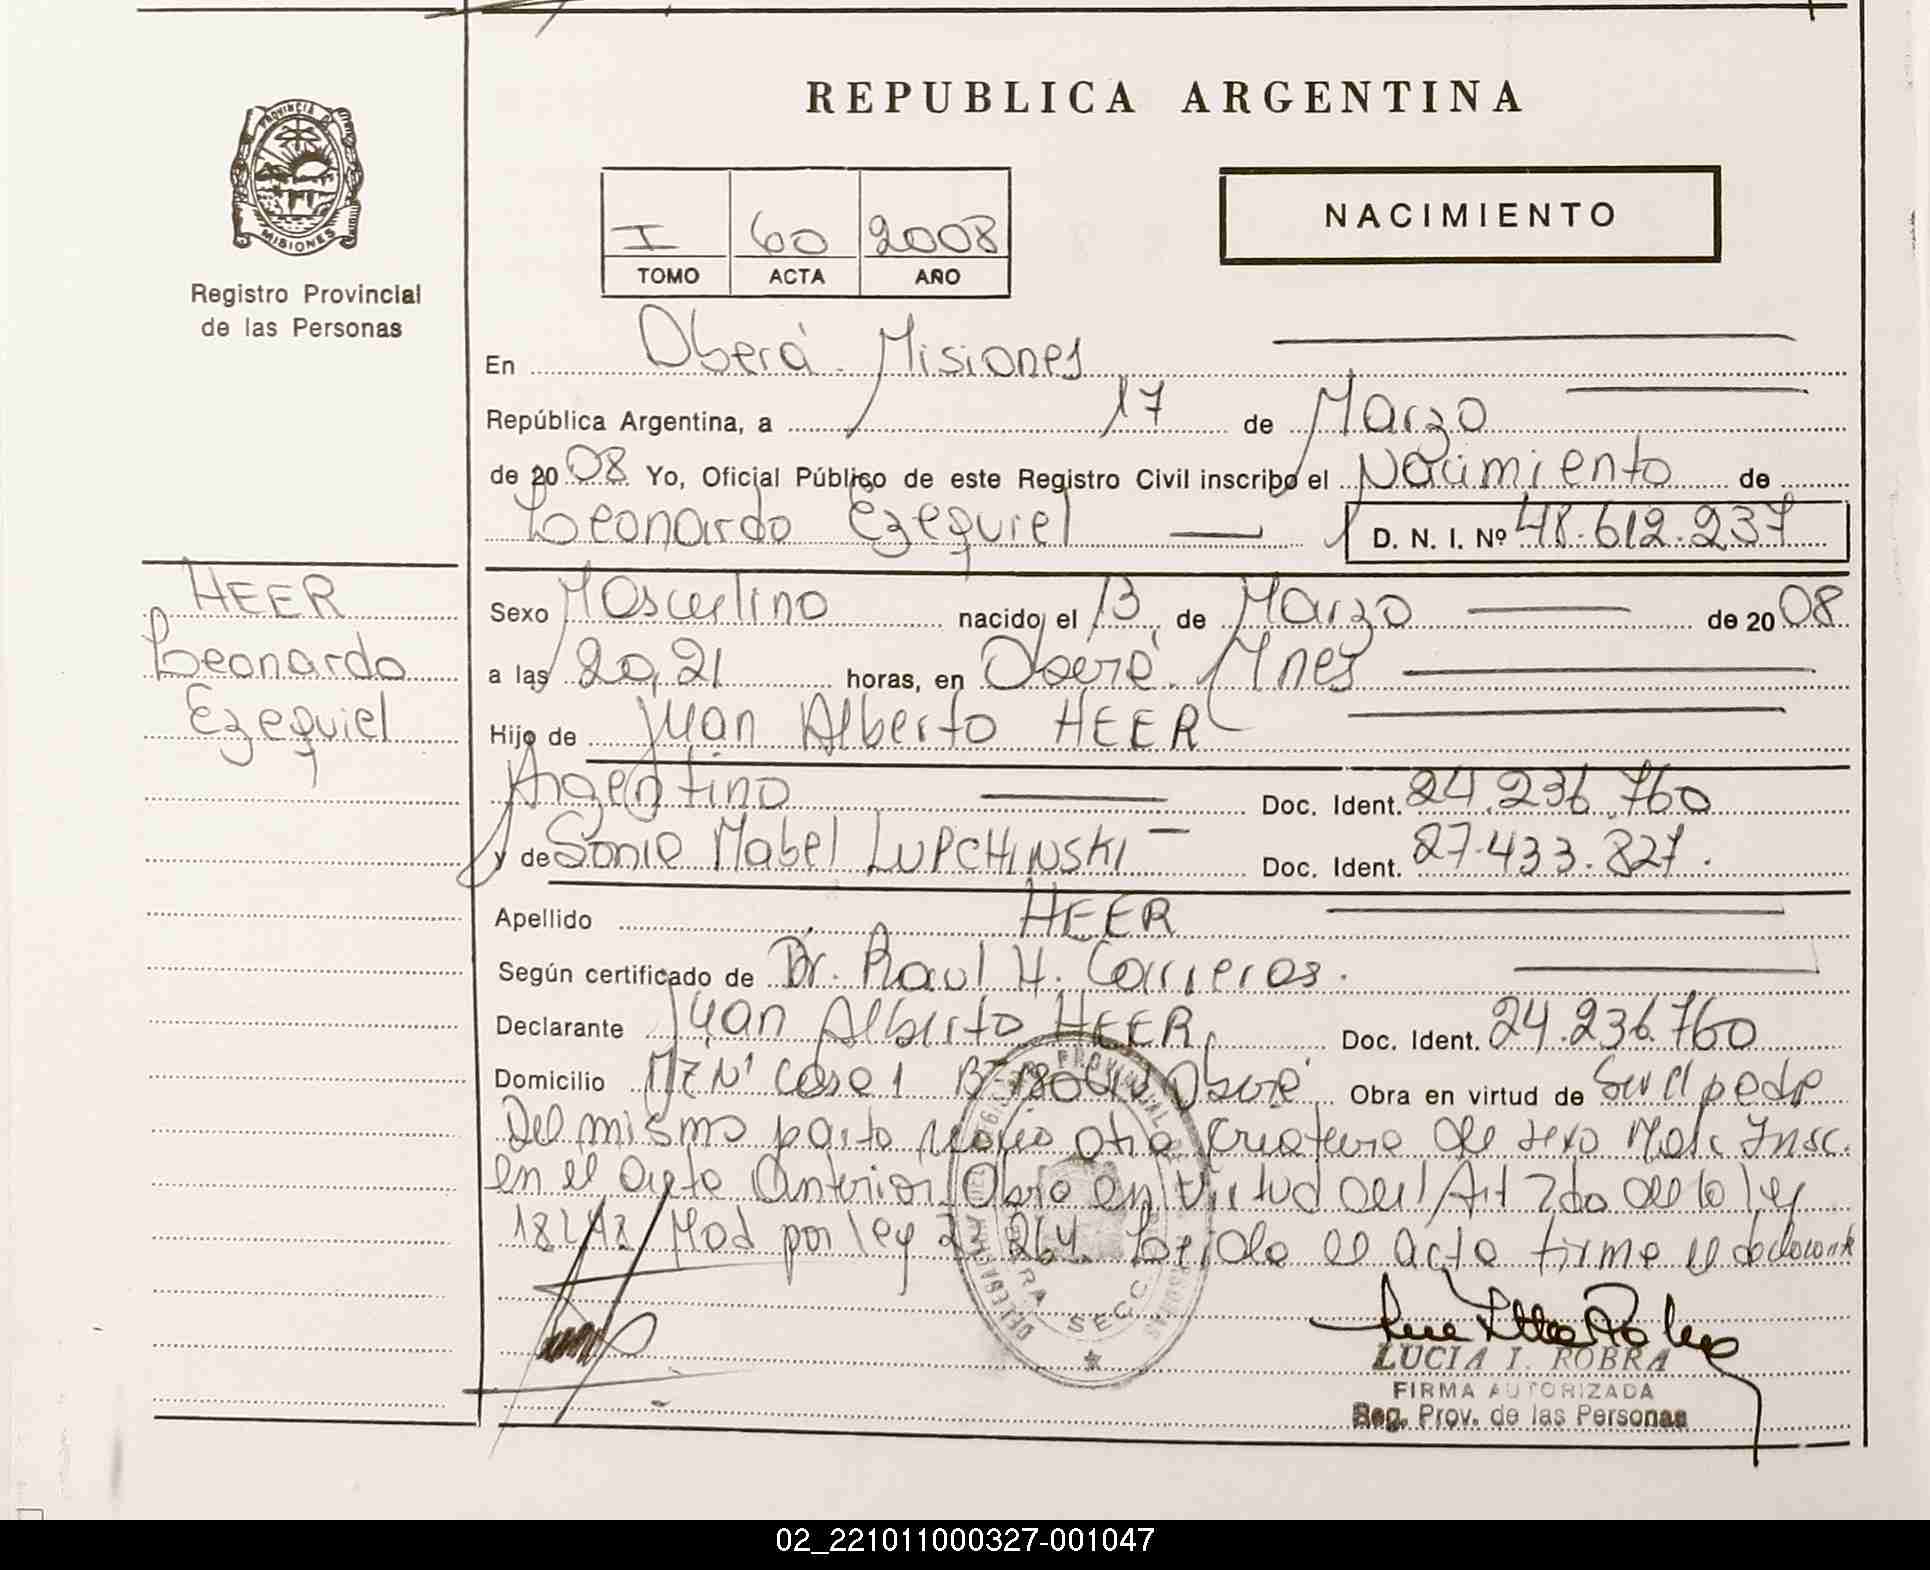 REPUBLICA ARGENTINA
PROVINCIA D
MISIONES
Registro Provincial
de las Personas
I 60 2008
TOMO ACTA AÑO
NACIMIENTO
En Oberá. Misiones
República Argentina, a 17 de Marzo
de 2008 Yo, Oficial Público de este Registro Civil inscribo el Nacimiento de
Leonardo Ezequiel D. N. I. Nº 48.612.237
HEER
Leonardo
Ezequiel
Sexo Masculino nacido el 13 de Marzo de 2008
a las 20,21 horas, en Oberá. Mnes
Hijo de Juan Alberto HEER
Argentino Doc. Ident. 24.236.760
y de Sonia Mabel LUPCHINSKI Doc. Ident. 27.433.827.
Apellido HEER
Según certificado de Dr. Raul H. Carrieros.
Declarante Juan Alberto HEER Doc. Ident. 24.236.760
Domicilio Mz Nº Casa 1 Bº Oberá Obra en virtud de Su
Del mismo parto nacio otra criatura de sexo Masc Insc.
en el acta Anterior. Obra en virtud del Art 2do de la ley
18248 Mod por ley 264. Leida el acta firma el declarante
LUCIA I. ROBRA
FIRMA AUTORIZADA
Reg. Prov. de las Personas
02_221011000327-001047